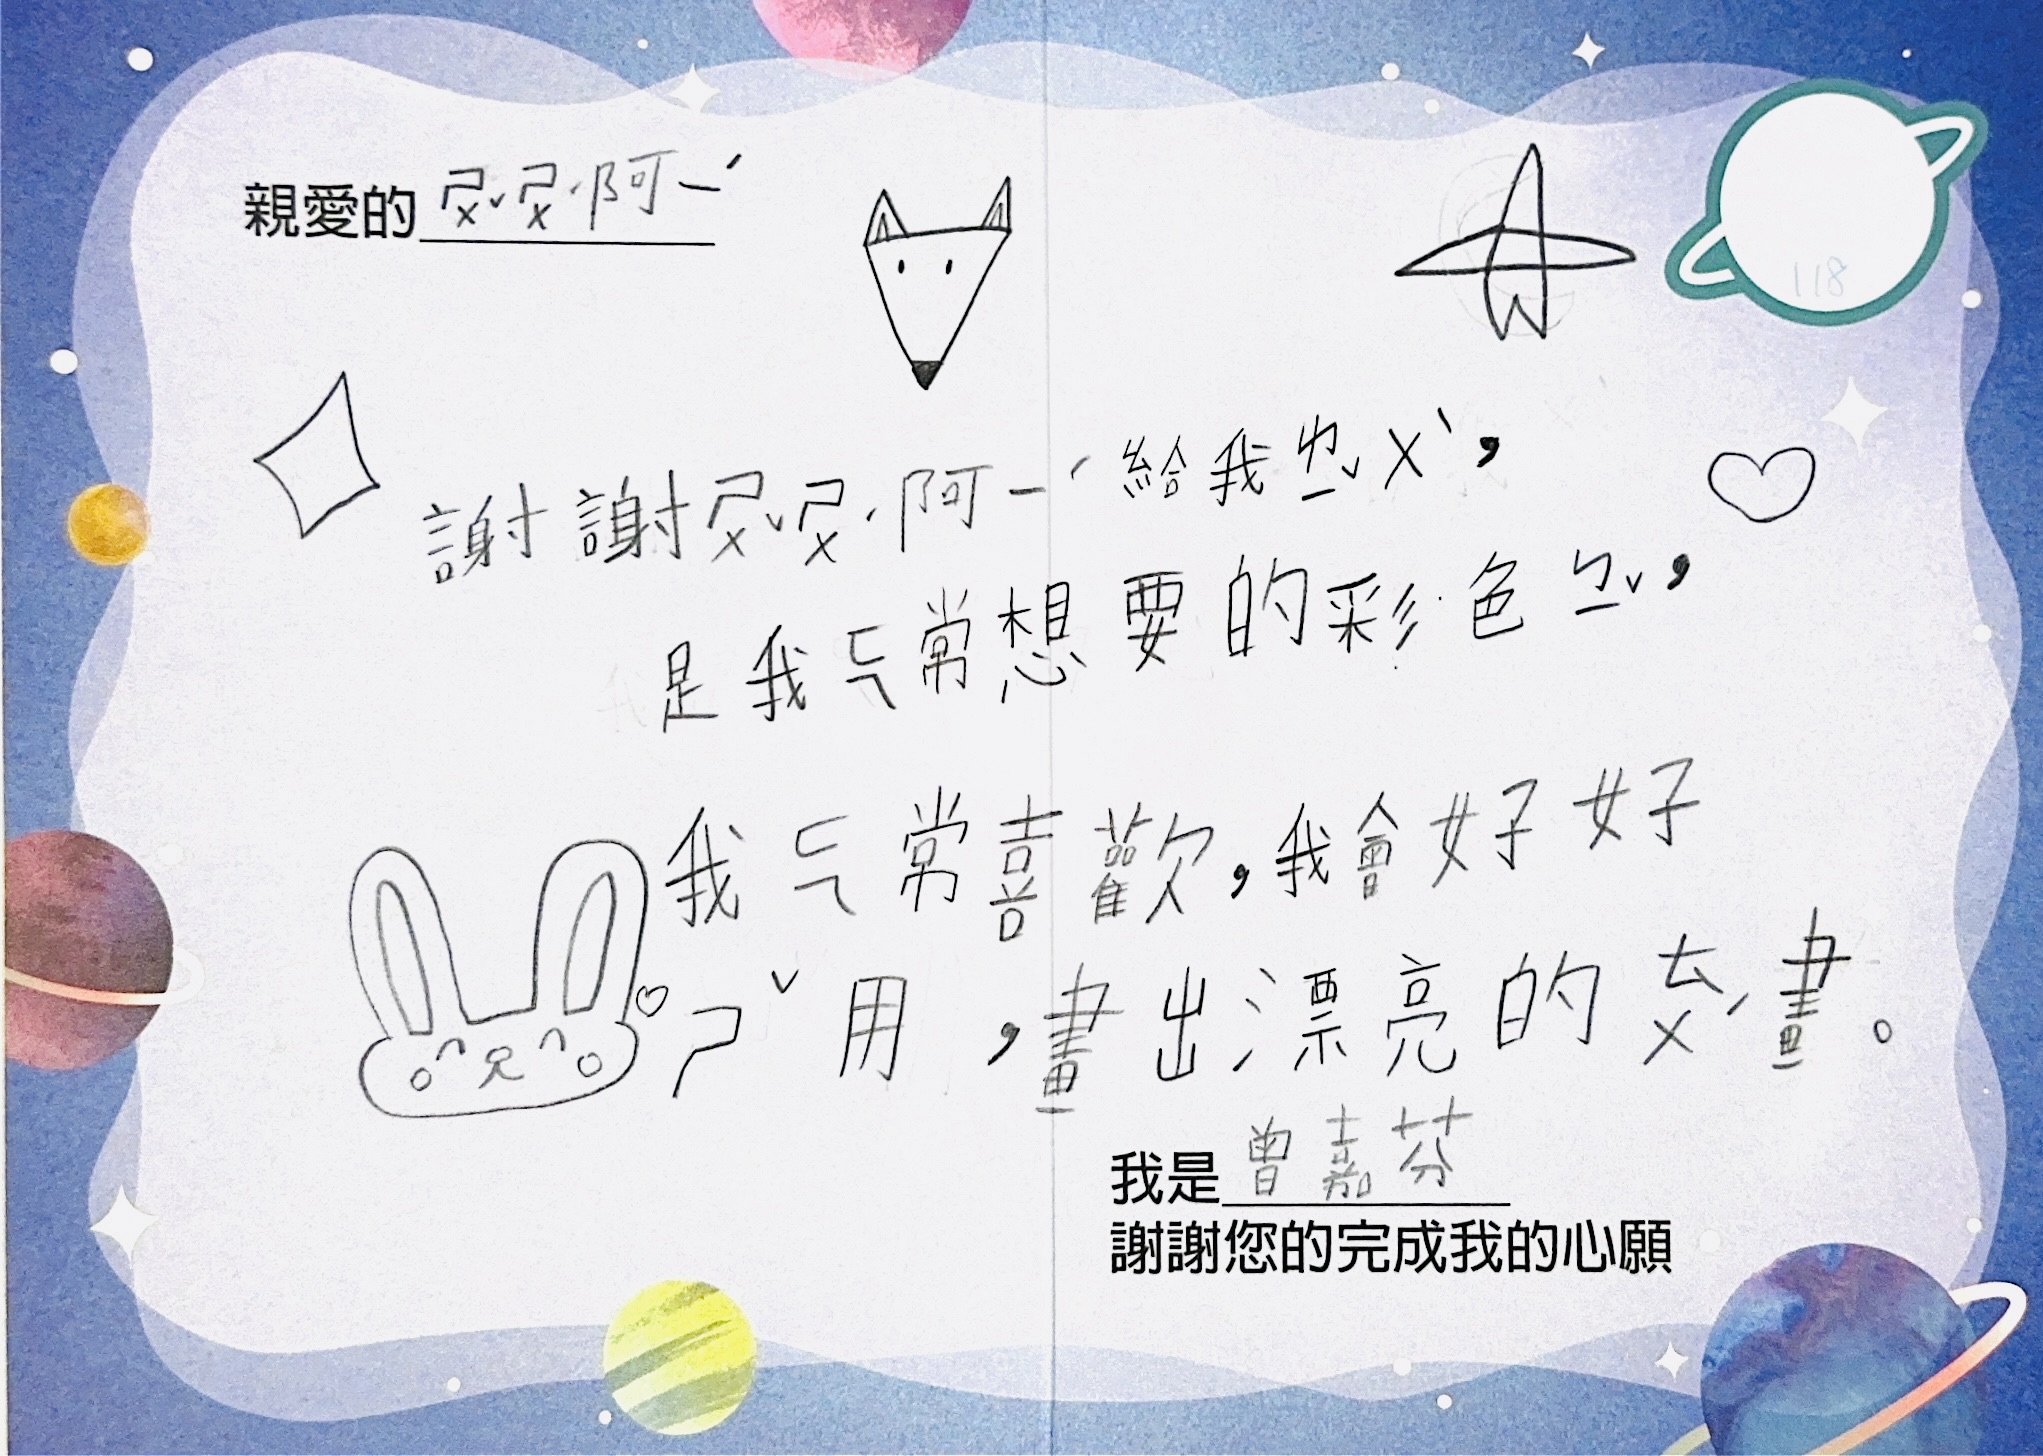 親愛的 ㄕㄨˇㄕㄨ˙阿ㄧˊ
118
謝謝ㄕㄨˇㄕㄨ˙阿ㄧˊ給我ㄌㄧˇㄨˋ，
是我ㄈㄟ常想要的彩色ㄅㄧˇ，
我ㄈㄟ常喜歡，我會好好
ㄕˇ用，畫出漂亮的ㄊㄨˊ畫。
我是曾嘉芬
謝謝您的完成我的心願